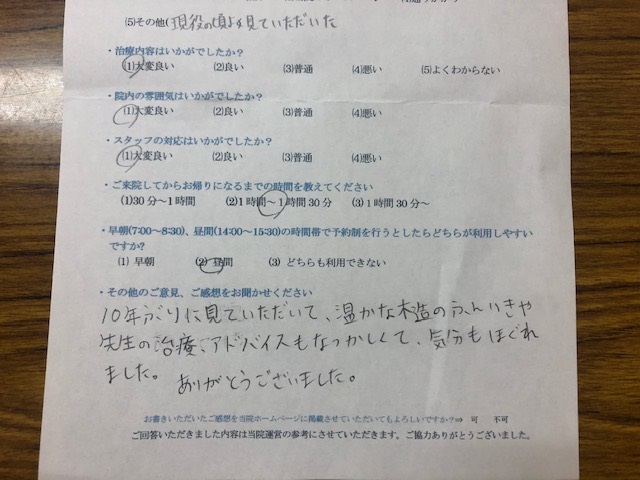 (5)その他(現役の頃よく見ていただいた
・治療内容はいかがでしたか？
(1)大変良い (2)良い (3)普通 (4)悪い (5)よくわからない
・院内の雰囲気はいかがでしたか？
(1)大変良い (2)良い (3)普通 (4)悪い
・スタッフの対応はいかがでしたか？
(1)大変良い (2)良い (3)普通 (4)悪い
・ご来院してからお帰りになるまでの時間を教えてください
(1)30分～1時間 (2)1時間～1時間30分 (3)1時間30分～
・早朝(7:00～8:30)、昼間(14:00～15:30)の時間帯で予約制を行うとしたらどちらが利用しやすい
ですか?
(1) 早朝 (2) 昼間 (3) どちらも利用できない
・その他のご意見、ご感想をお聞かせください
10年ぶりに見ていただいて、温かな木造のふんいきや
先生の治療、アドバイスもなつかしくて、気分もほぐれ
ました。 ありがとうございました。
お書きいただいたご感想を当院ホームページに掲載させていただいてもよろしいですか？⇒ 可 不可
ご回答いただきました内容は当院運営の参考にさせていただきます。ご協力ありがとうございました。